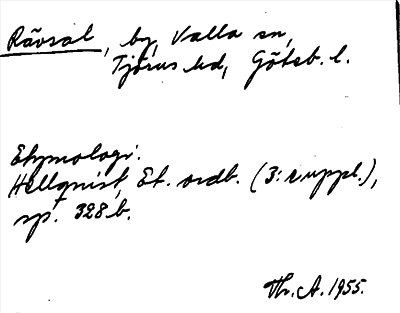 Rävsal, by, Valla sn,
Tjörns hd, Göteb. l.
Etymologi:
Hellquist, Et. ordb. (3: e uppl.),
sp. 328 b.
Th. A. 1955.